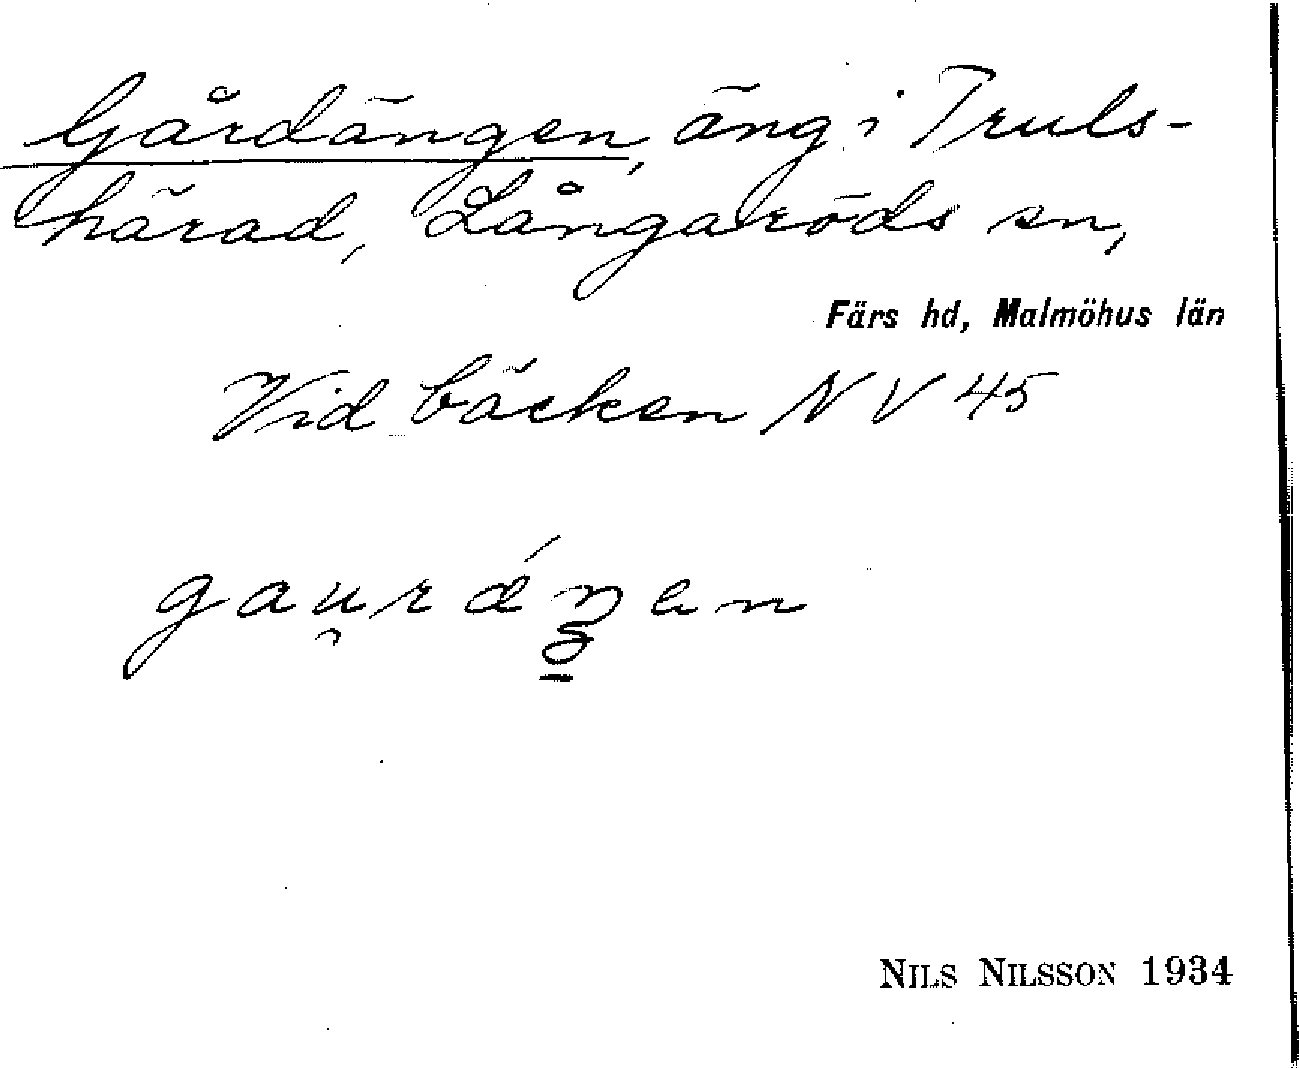 Gårdängen, äng i Truls-
härad, Långaröds sn,
Färs hd, Malmöhus län
Vid bäcken NV 45
NILS NILSSON 1934